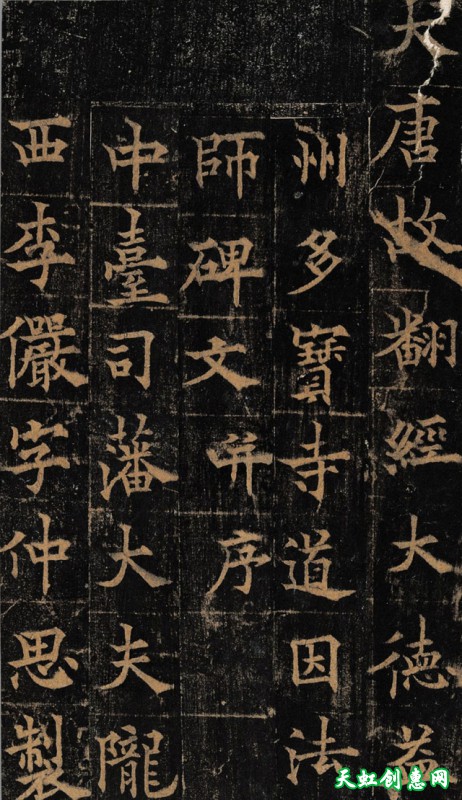 大唐故翻經大德益
州多寶寺道因法
師碑文并序
中臺司藩大夫隴
西李儼字仲思製
天虹创惠网